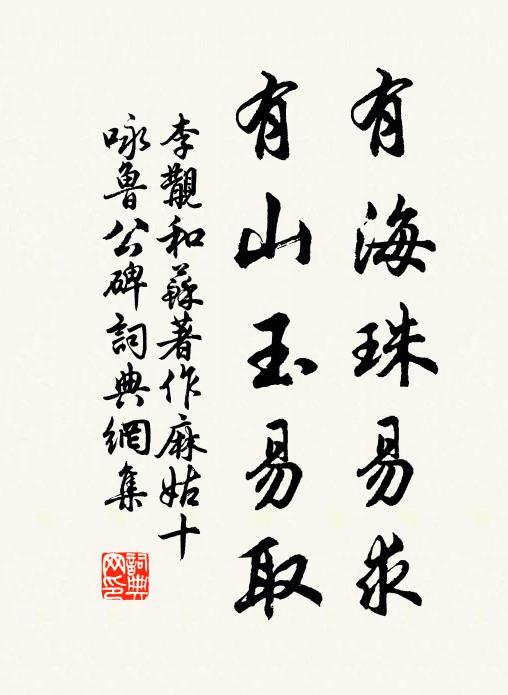 有海珠易求
有山玉易取
李觀和蘇著作麻姑十
咏魯公碑詞典網集
詞典網印